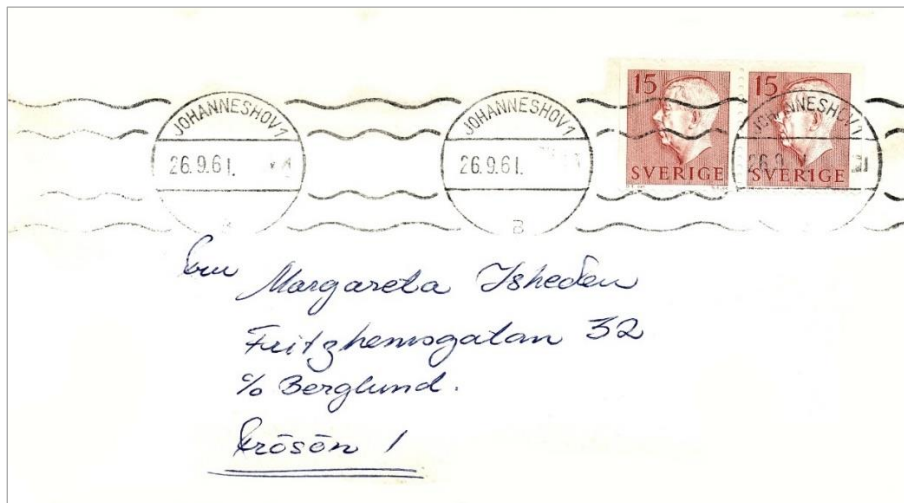 JOHANNESHOV 1
26.9.61.
JOHANNESHOV 1
26.9.61.
B
15
SVERIGE
15
SVERIGE
JOHANNESHOV 1
26.9.
Fru
Margareta Isheden
Fritzhemsgatan 32
c/o Berglund.
Frösön 1